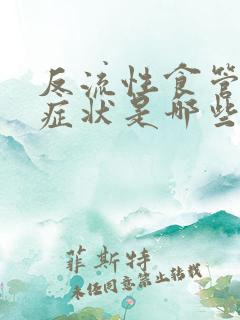 反流性食管
症状是哪些
菲斯特
未经同意禁止转载